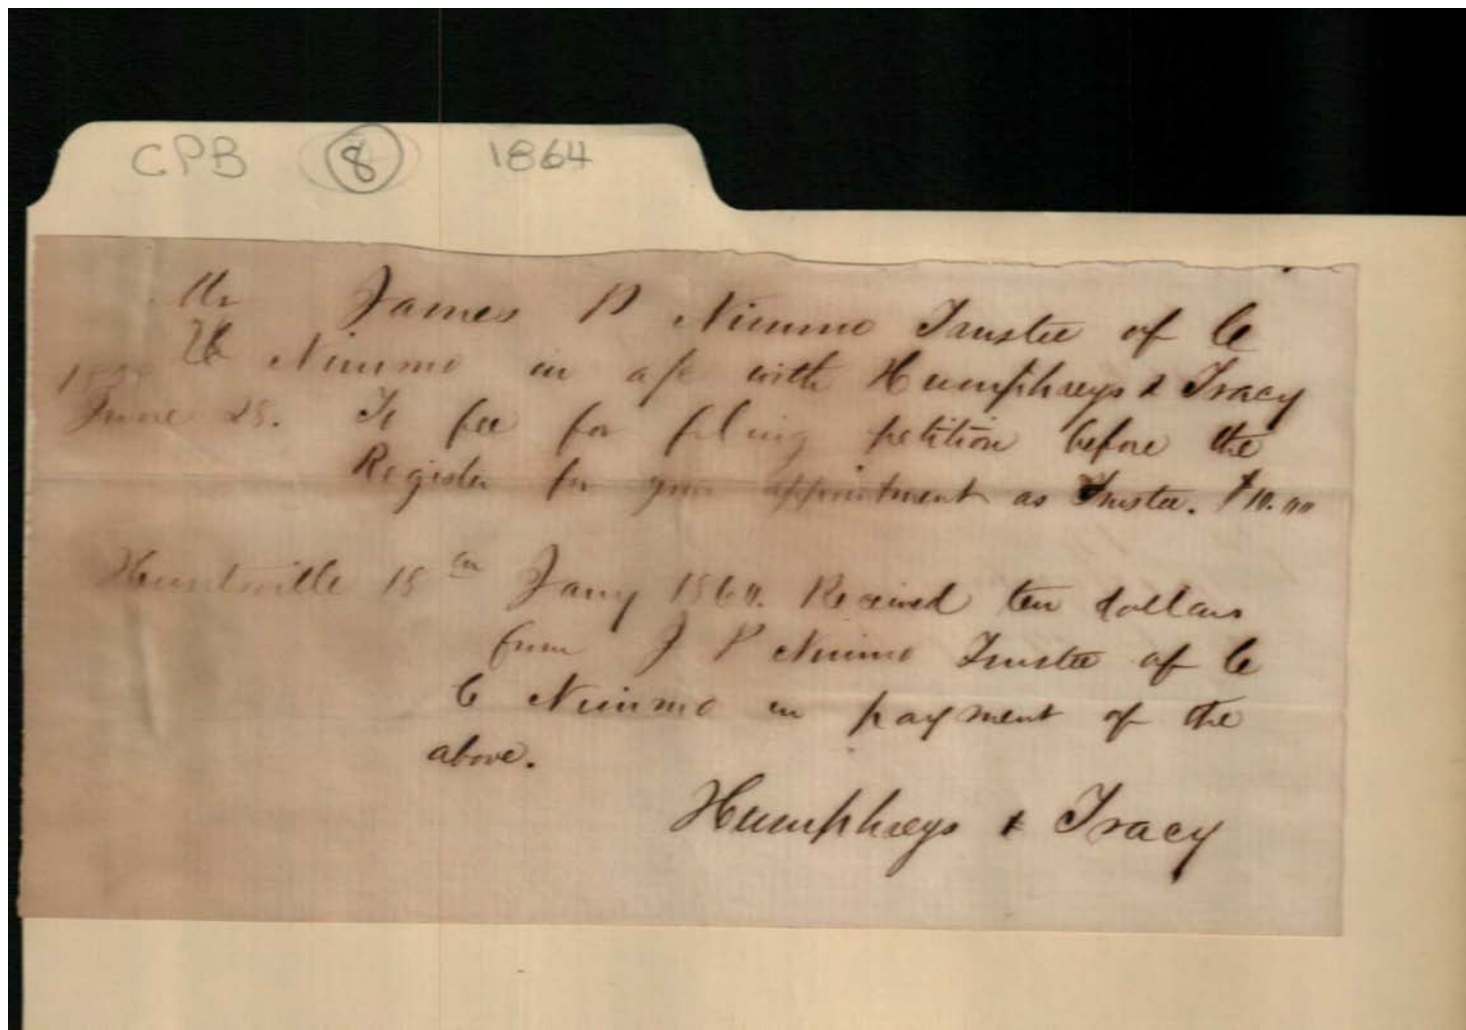 CPB 8 1864
Mr James P Nimmo Trustee of C
Nimmo in a/c with Humphreys & Tracy
June 25. To fee for filing petition before the
Register for your appointment as Trustee. $10.00
Huntsville 18th Jany Received ten dollars
from J P Nimmo Trustee of C
C Nimmo in payment of the
above.
Humphreys & Tracy